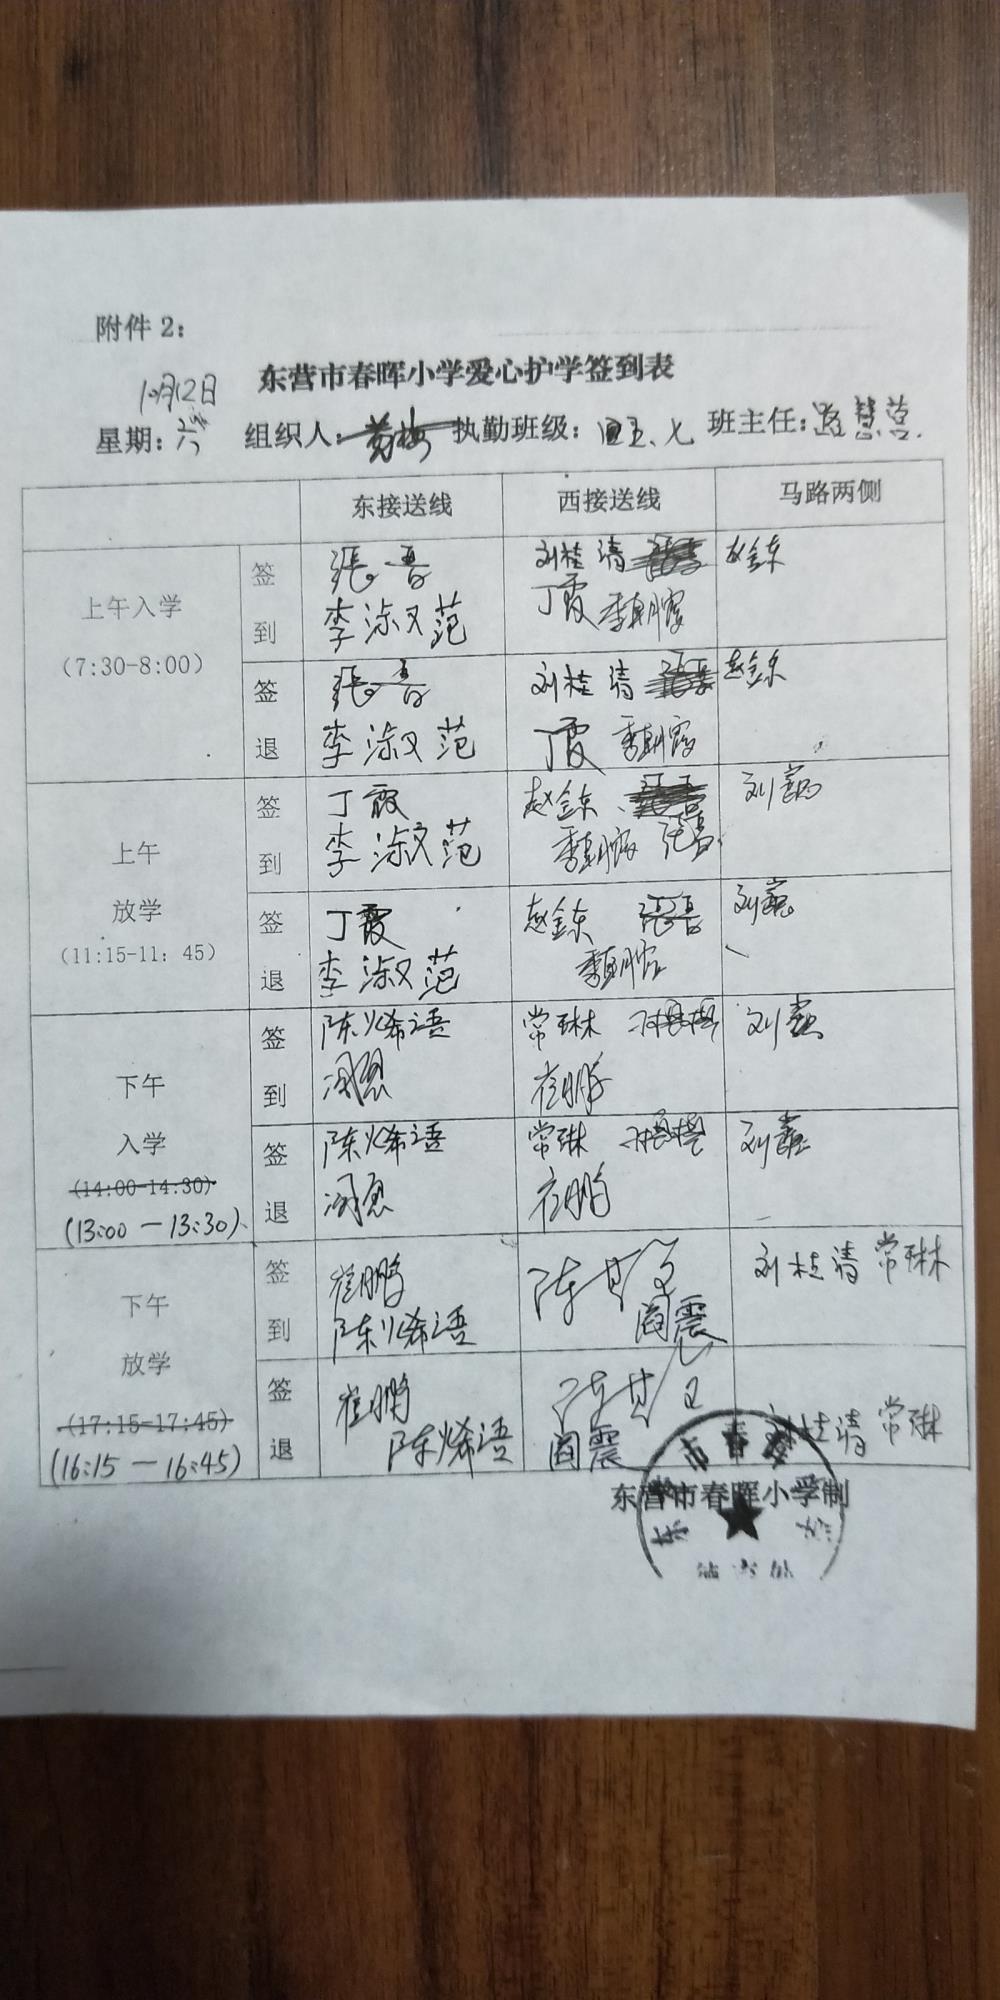 附件 2：
东营市春晖小学爱心护学签到表
10月12日
星期：六 组织人： 执勤班级：四五、七 班主任：路慧莹.
东接送线 西接送线 马路两侧
上午入学
（7:30-8:00）
签到
張晋 刘桂清 赵金东
李淑范 丁霞 季朝霞
签退
張晋 刘桂清 赵金东
李淑范 丁霞 季朝霞
上午
放学
（11:15-11：45）
签到
丁霞 赵金东 刘
李淑范 季朝霞
签退
丁霞 赵金东 刘
李淑范 季朝霞
下午
入学
（14:00-14:30）
(13:00 — 13:30)
签到
陈烯语 常琳 刘
崔鹏
签退
陈烯语 常琳 刘
崔鹏
下午
放学
（17:15-17:45）
(16:15 — 16:45)
签到
崔鹏 陈 刘桂清 常琳
陈烯语 阎震
签退
崔鹏 陈 刘桂清 常琳
陈烯语 阎震
东营市春晖小学制